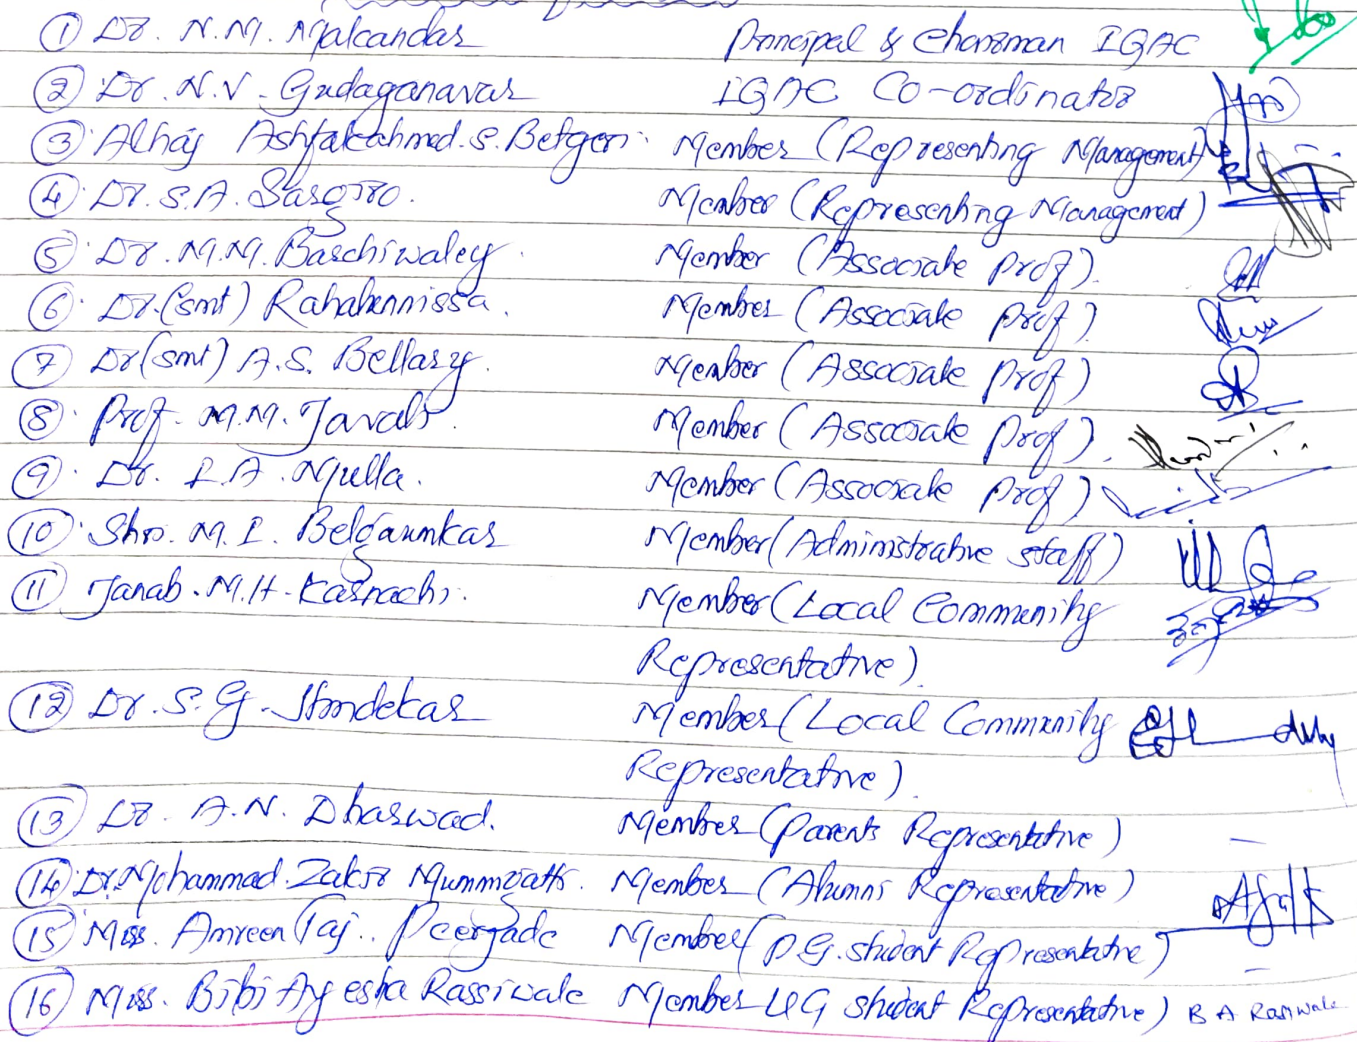 ① Dr. N.M. Makandar Principal & Chairman IQAC
② Dr. N.V. Gudaganavar IQAC Co-ordinator
③ Alhaj Ashfakahmed. S. Betgeri Member (Representing Management)
④ Dr. S.A. Sasgiro. Member (Representing Management)
⑤ Dr. M.M. Baschiwaley. Member (Associate Prof).
⑥ Dr. (smt) Rahahennissa. Member (Associate Prof)
⑦ Dr (smt) A.S. Bellary. Member (Associate Prof)
⑧ Prof. M.M. Javali. Member (Associate Prof).
⑨ Dr. I.A. Mulla. Member (Associate Prof)
⑩ Shri. M.I. Belgaumkar Member (Administrative staff)
⑪ Janab. M.H. Member (Local Community
Representative)
⑫ Dr. S.G. Member (Local Community
Representative).
⑬ Dr. A.N. Dharwad. Member (Parents Representative) –
⑭ Dr. Mohammad. Zakir Member (Alumni Representative)
⑮ Miss. Amreen Taj.. Peerzade Member (P.G. student Representative) –
⑯ Miss. Bibi Ayesha Rassiwale Member UG student Representative) B A Rasiwale